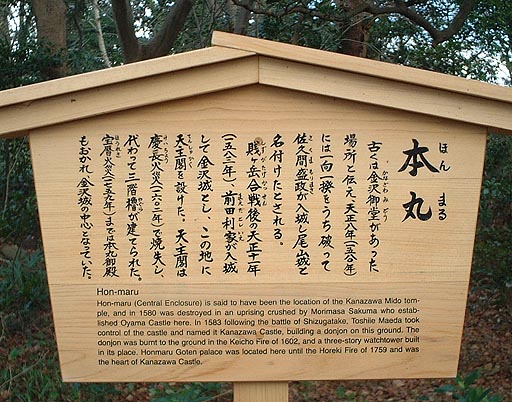 ほん まる
本丸
かなざわみどう
古くは金沢御堂があった
場所と伝え、天正八年(一五八〇)
には一向一揆をうち破って
さくまもりまさ
佐久間盛政が入城し尾山城と
名付けたとされる。
しずがたけがっせん
賤ヶ岳合戦後の天正十一年
まえだとしいえ
(一五八三)、前田利家が入城
して金沢城とし、この地に
てんしゅかく
天主閣を設けた。天主閣は
けいちょう
慶長火災(一六〇二)で焼失し、
やぐら
代わって三階櫓が建てられた。
ほうれき
宝暦火災(一七五九)までは本丸御殿
もおかれ、金沢城の中心となっていた。
Hon-maru
Hon-maru (Central Enclosure) is said to have been the location of the Kanazawa Mido tem-
ple, and in 1580 was destroyed in an uprising crushed by Morimasa Sakuma who estab-
lished Oyama Castle here. In 1583 following the battle of Shizugatake, Toshiie Maeda took
control of the castle and named it Kanazawa Castle, building a donjon on this ground. The
donjon was burnt to the ground in the Keicho Fire of 1602, and a three-story watchtower built
in its place. Honmaru Goten palace was located here until the Horeki Fire of 1759 and was
the heart of Kanazawa Castle.